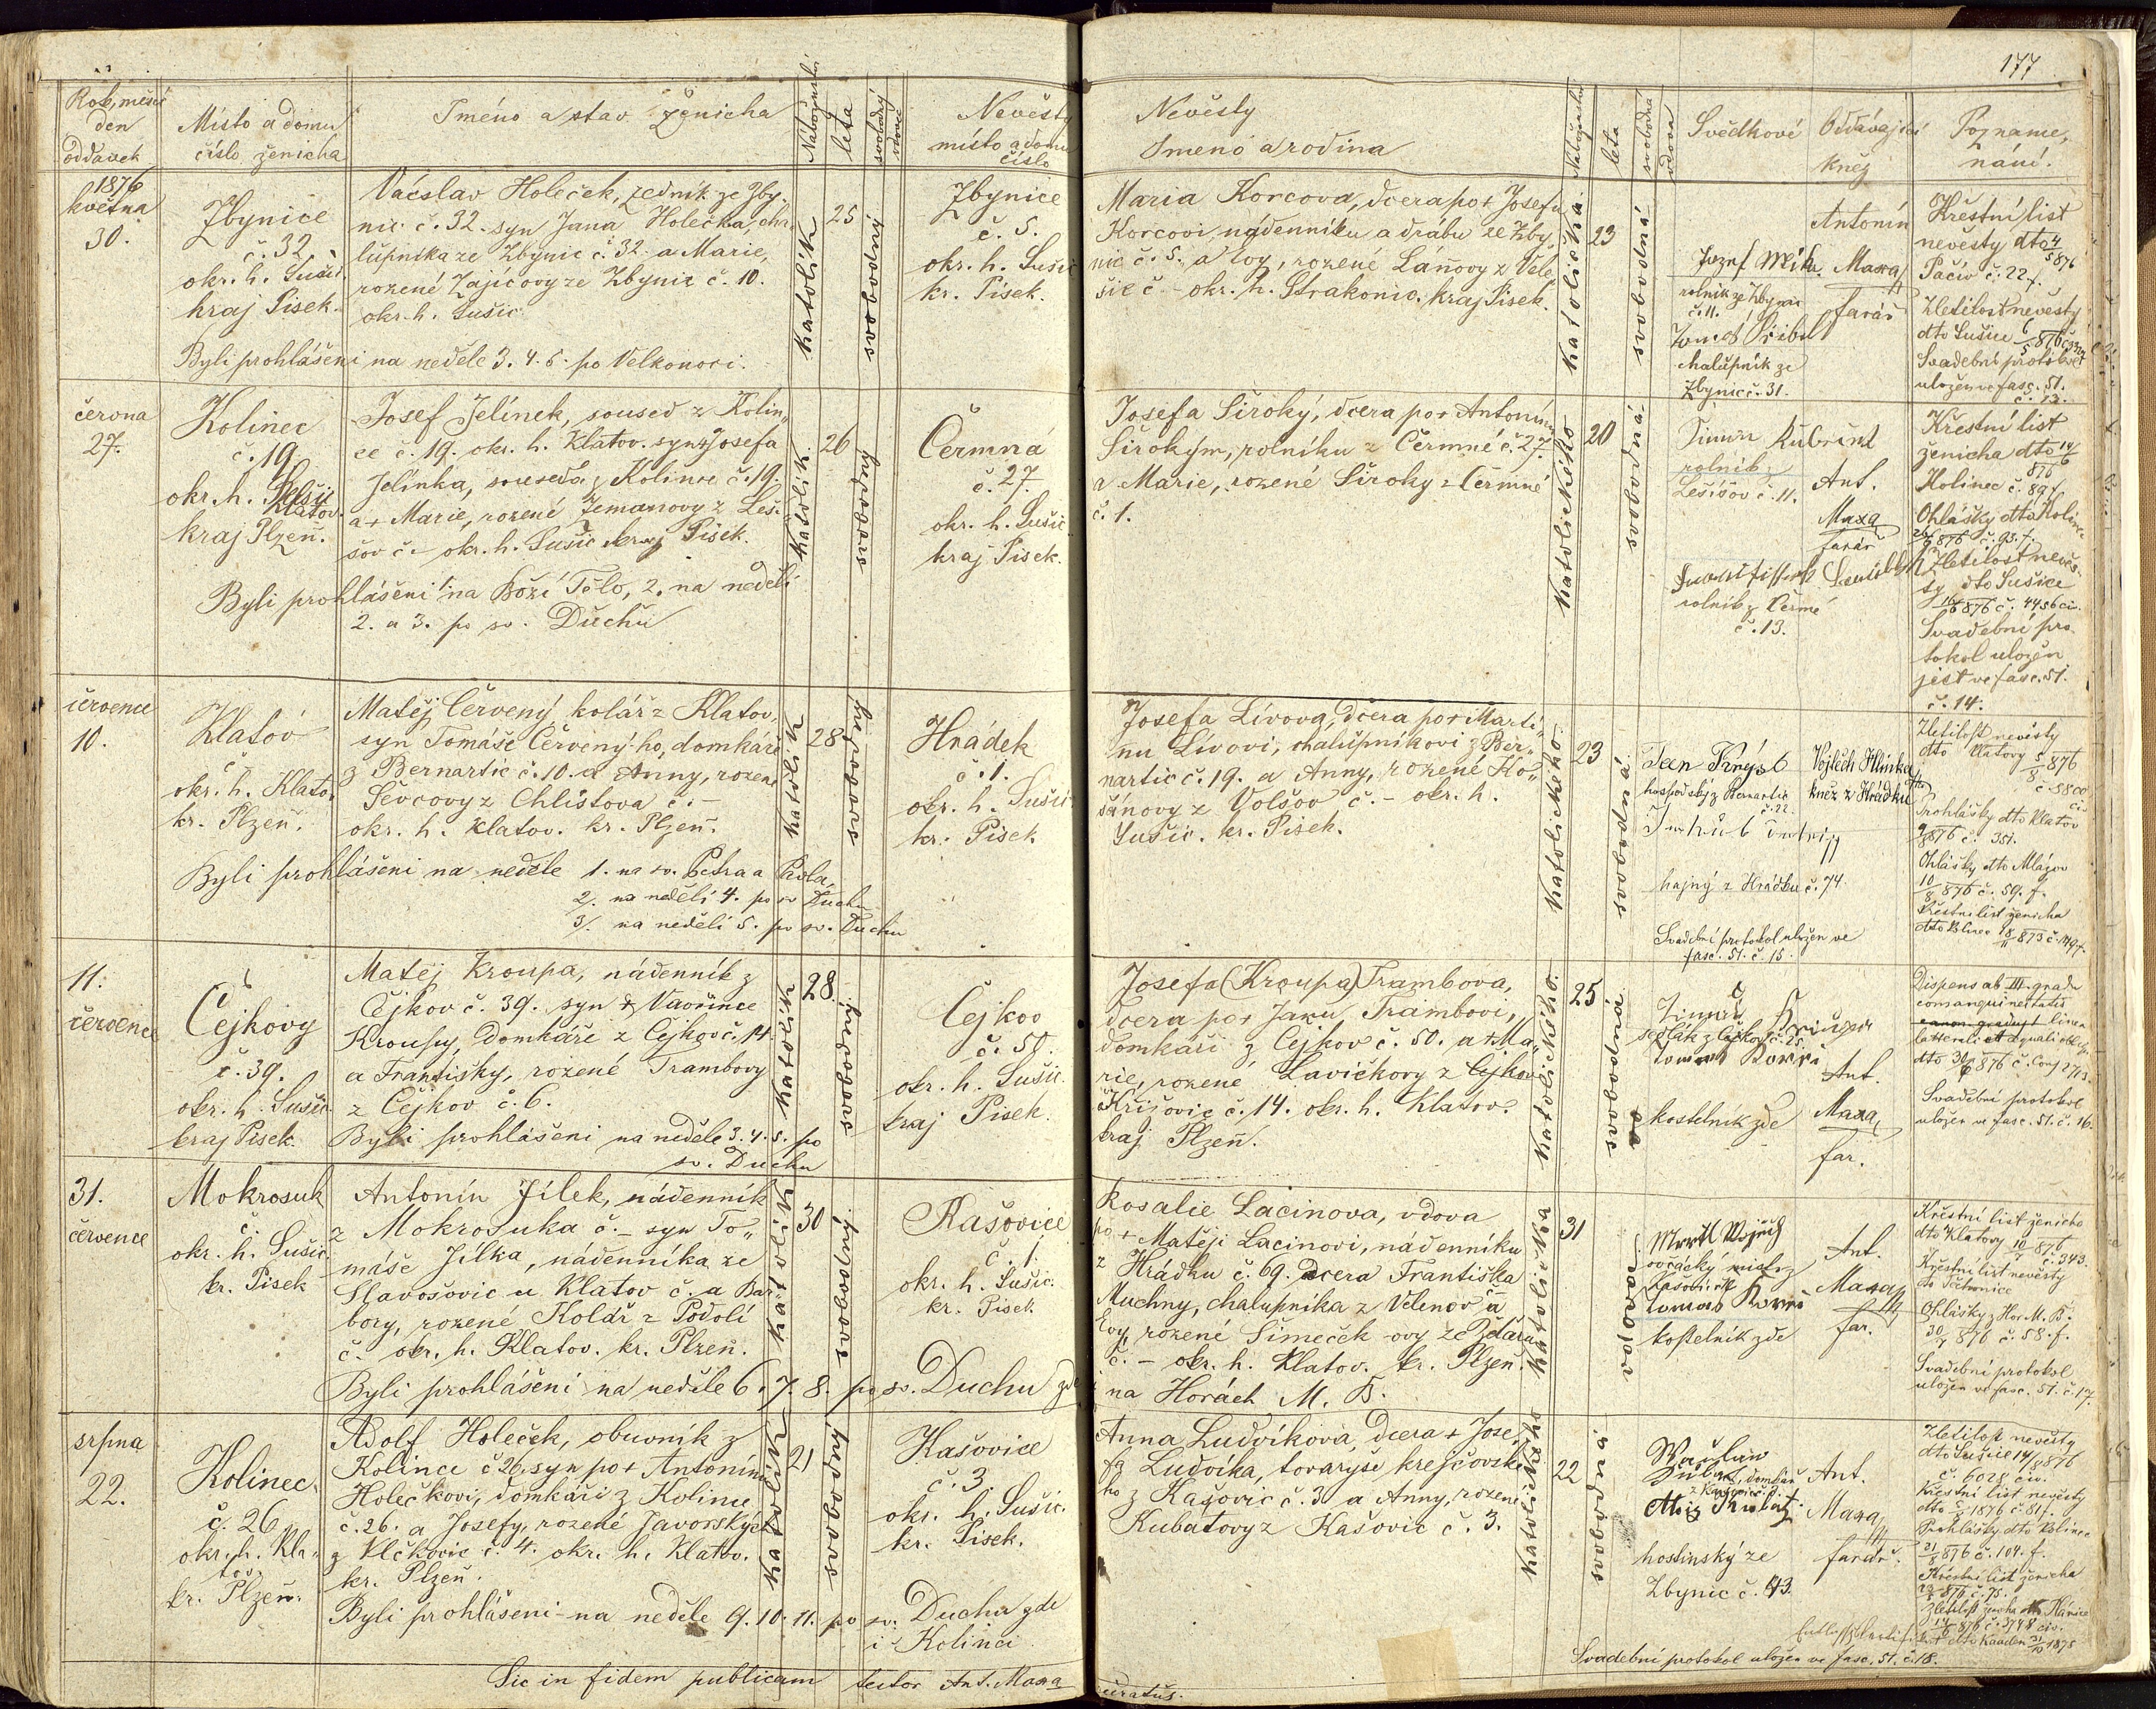 177
Rok, měsíc
den
oddavek
Místo a domu
číslo ženicha
Jméno a stav ženicha
Náboženství
léta
svobodný
vdovec
Nevěsty
místo a domu
číslo
Nevěsty
Jmeno a rodina
Náboženství
léta
svobodná
vdova
Svědkové
Oddávající
kněz
Pozname,
nání.
1876
května
30.
Zbynice
č. 32
okr. h. Sušic
kraj Písek.
Václav Holeček, zedník ze Zby,
nic č. 32. syn Jana Holečka, cha,
lupníka ze Zbynic č. 32. a Marie,
rozené Zajícovy ze Zbynic č. 10.
okr. h. Sušic
Byli prohlášeni na neděle 3. 4. 5. po Velkonoci.
katolík
25
svobodný
Zbynice
č. 5.
okr. h. Sušic
kr. Písek.
Maria Korcova, dcera po + Josefu
Korcovi, nádenníku a drábu ze Zby,
nic č. 5. a Evy, rozené Laňovy z Vele
šic č. - okr. h. Strakonic. kraj Písek.
katolička
23
svobodná
Jozef Mika
rolník ze Zbynic
č. 11.
chalupník ze
Zbynic č. 31.
Antonín
Maxa
farář
Křestní list
nevěsty dto 4/5 876
Pačiv č. 22 f.
Zletilost nevěsty
dto Sušice 6/5 876
Svadební protokol
uložen ve fasc. 51.
č. 13.
června
27.
Kolinec
č. 19
okr. h. Klatov.
kraj Plzeň.
Josef Jelínek, soused z Kolin,
ce č. 19. okr. h. Klatov. syn + Josefa
Jelínka, souseda z Kolince č. 19.
a + Marie, rozené Zemanovy z Leši
šov č. okr. h. Sušic kraj Písek.
Byli prohlášeni 1. na Boží Tělo, 2. na neděli
2. a 3. po sv. Duchu
katolík
26
svobodný
Čermná
č. 27.
okr. h. Sušic
kraj Písek.
Josefa Široký, dcera po + Antonínu
Širokým, rolníku z Čermné č. 27.
a Marie, rozené Široky z Čermné
č. 1.
katolického
20
svobodná
rolník z
Lešišov č. 11.
rolník z Čermé
č. 13.
Ant.
Maxa
farář
Křestní list
ženicha dto 14/6
876
Kolinec č. 89 f.
Ohlášky dto Kolinec
876 č. 93. f.
Zletilost nevěs,
ty dto Sušice
16/6 876 č. 4456 civ.
Svadební pro,
tokol uložen
jest ve fasc. 51.
č. 14.
července
10.
Klatov
č.
okr. h. Klatov
kr. Plzeň.
Matěj Červený, kolář z Klatov,
syn Tomáše Červenýho, domkáře
z Bernartic č. 10. a Anny, rozené
Ševcovy z Chlistova č. -
okr. h. Klatov. kr. Plzeň.
Byli prohlášeni na neděle 1. na sv. Petra a Pavla,
2. na neděli 4. po sv Duchu
3/. na neděli 5. po sv. Duchu
katolík
28
svobodný
Hrádek
č. 1.
okr. h. Sušic
kr. Písek
Josefa Lívova, dcera po + Marti,
nu Lívovi, chalupníkovi z Ber,
nartic č. 19. a Anny, rozené Ko,
šánovy z Volšov č. - okr. h.
Sušic. kr. Písek.
katolického
23
svobodná
hospodský z Bernartic
č. 22.
hajný z Hrádku č. 74.
Svadební protokol uložen ve
fasc. 51. č. 15.
Vojtěch Hlinka
kněz z Hrádku
Zletilost nevěsty
dto Klatovy 5/8 876
č. 5800
civ.
Prohlášky dto Klatov
9/8 876 č. 351.
Ohlášky dto Mlázov
10/8 876 č. 59. f.
Křestní list ženicha
11.
července
Čejkovy
č. 39.
okr. h. Sušic
kraj Písek
Matěj Kroupa, nádenník z
Čejkov č. 39. syn + Vavřince
Kroupy, domkáře z Čejkov č. 14.
a Františky, rozené Trambovy
z Čejkov č. 6.
Byli prohlášeni na neděle 3. 4. 5. po
sv. Duchu
katolík
28.
svobodný
Čejkov
č. 50.
okr. h. Sušic.
kraj Písek.
Josefa (Kroupa) Trambova,
dcera po + Janu Trambovi,
domkáři z Čejkov č. 50. a + Ma,
rie, rozené Lavičkovy z
Křišovic č. 14. okr. h. Klatov.
kraj Plzeň.
katolického
25
svobodná
sedlák z Čejkov č. 25.
kostelník zde
Ant.
Maxa
far.
Dispens ab III. gradu
consanguinitatis
Svadební protokol
uložen ve fasc. 51. č. 16.
31.
července
Mokrosuk
č.
okr. h. Sušic.
kr. Písek
Antonín Jílek, nádenník
z Mokrosuka č. - syn To,
máše Jílka, nádenníka ze
Slavošovic u Klatov č. a Bar,
bory, rozené Kolář z Podolí
č. okr. h. Klatov. kr. Plzeň.
Byli prohlášeni na neděle 6. 7. 8. po sv. Duchu zde
i na Horách M. B.
katolík
30
svobodný
Kašovice
č. 1.
okr. h. Sušic.
kr. Písek
Rosalie Lacinova, vdova
po + Matěji Lacinovi, nádenníku
z Hrádku č. 69. dcera Františka
Muchny, chalupníka z Velenov a
Evy, rozené Šimeček-ovy ze Ždáru
č. - okr. h. Klatov. kr. Plzeň.
katolička
31
vdova
ovčácký mistr z
Kašovic
Tomas
kostelník zde
Ant.
Maxa
far.
Křestní list ženicha
dto Klatovy 10/7 876
č. 343.
Křestní list nevěsty
Ohlášky z Hor M. B.
30/7 876 č. 58. f.
Svadební protokol
uložen ve fasc. 51. č. 17.
srpna
22.
Kolinec
č. 26
okr. h. Kla,
tov.
kr. Plzeň.
Adolf Holeček, obuvník z
Kolince č 26. syn po + Antonínu
Holečkovi, domkáři z Kolince
č. 26. a Josefy, rozené Javorských
z Vlčkovic č. 4. okr. h. Klatov.
kr. Plzeň.
Byli prohlášeni na neděle 9. 10. 11. po sv. Duchu zde
i Kolinci
katolík
21
svobodný
Kašovice
č. 3
okr. h. Sušic.
kr. Písek.
Anna Ludvíkova, dcera + Jose,
fa Ludvíka, tovaryše krejčovské
ho z Kašovic č. 3 a Anny, rozené
Kubatovy z Kašovic č. 3.
katolického
22
svobodná
Alois Kubat
hostinský ze
Zbynic č. 43.
Ant.
Maxa
farář.
Zletilost nevěsty
dto Sušice 14/8 876
č. 6028 civ.
Křestní list nevěsty
Prohlášky dto Kolinec
21/8 876 č. 104. f.
Křestní list ženicha
Svadební protokol uložen ve fasc. 51. č. 18.
Sic in fidem publicam testor Ant. Maxa
curatus.